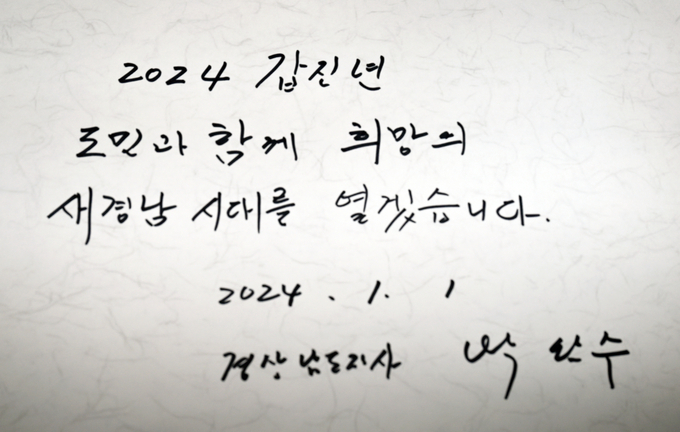 2024 갑진년
도민과 함께 희망의
새경남 시대를 열겠습니다.
2024. 1. 1
경상남도지사 박완수